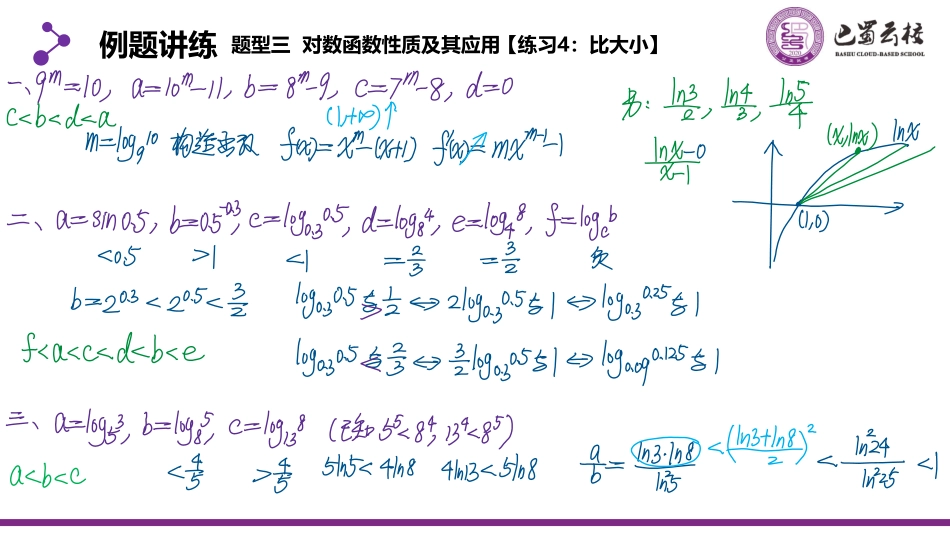 例题讲练 题型三 对数函数性质及其应用【练习4：比大小】
巴蜀云校
BASHU CLOUD-BASED SCHOOL
一、9^m=10, a=10^m-11, b=8^m-9, c=7^m-8, d=0
c<b<d<a
(1,+∞)↑
m=log₉10 构造函数 f(x)=x^m-(x+1) f'(x)=mx^(m-1)-1
另: ln3/2, ln4/3, ln5/4
(lnx-0)/(x-1)
(x,lnx) lnx
(1,0)
二、a=sin0.5, b=0.5^(-0.3), c=log_0.3 0.5, d=log₈4, e=log₄8, f=log_c b
<0.5 >1 <1 =2/3 =3/2 负
b=2^0.3<2^0.5<3/2 log_0.3 0.5 与 1/2 ⇔ 2log_0.3 0.5 与 1 ⇔ log_0.3 0.25 与 1
f<a<c<d<b<e
log_0.3 0.5 与 2/3 ⇔ 3/2 log_0.3 0.5 与 1 ⇔ log_0.09 0.125 与 1
三、a=log₅3, b=log₈5, c=log₁₃8 (已知 5^5<8^4, 13^4<8^5)
a<b<c <4/5 >4/5 5ln5<4ln8 4ln13<5ln8
a/b=(ln3·ln8)/ln²5 <((ln3+ln8)/2)² < ln²24/ln²25 <1